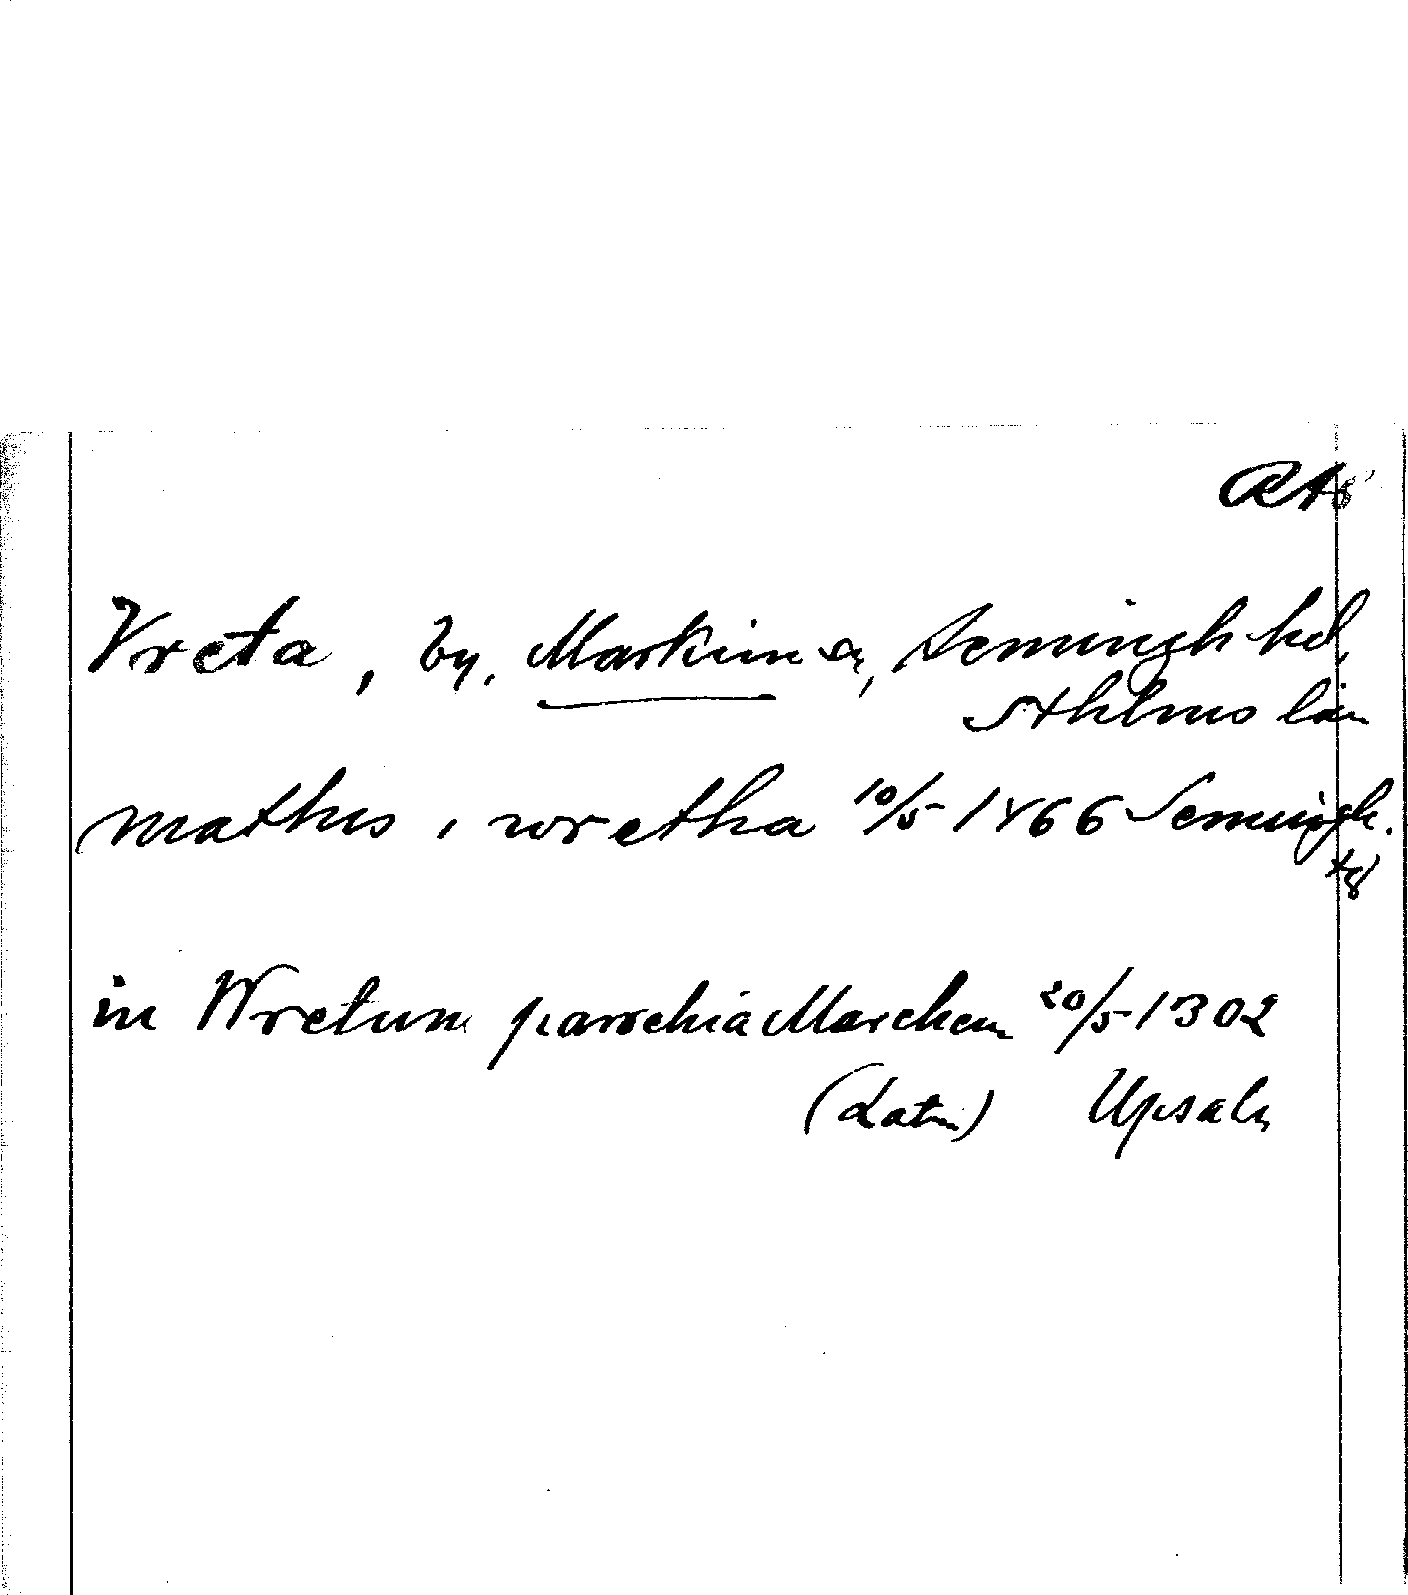 RA
Vreta, by, Markims sn, Seminghhd,
Sthlms län
mathis i wretha 10/5 1466 Semingh.
tg
in Wretum parochia Marchem 20/5 1302
(Latin) Upsala